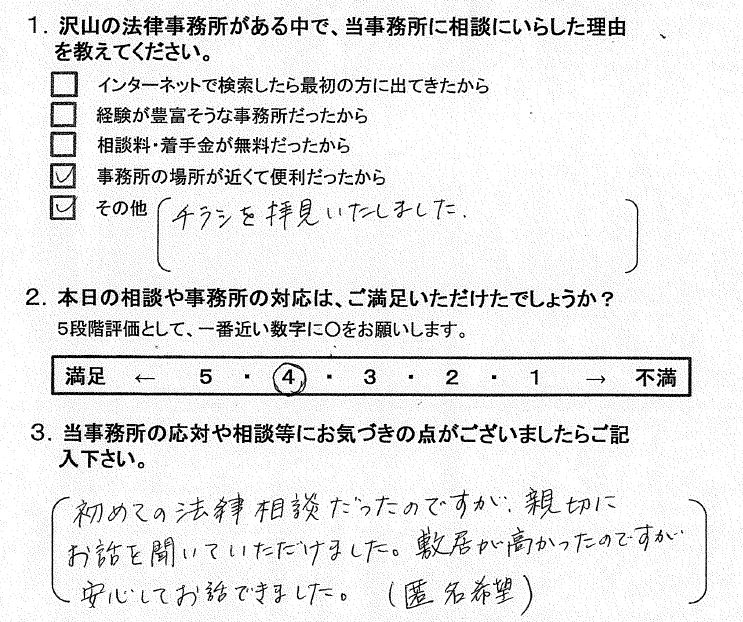 1. 沢山の法律事務所がある中で、当事務所に相談にいらした理由
を教えてください。
□ インターネットで検索したら最初の方に出てきたから
□ 経験が豊富そうな事務所だったから
□ 相談料・着手金が無料だったから
☑ 事務所の場所が近くて便利だったから
☑ その他 (チラシを拝見いたしました.)
2. 本日の相談や事務所の対応は、ご満足いただけたでしょうか？
5段階評価として、一番近い数字に○をお願いします。
満足 ← 5 ・ ④ ・ 3 ・ 2 ・ 1 → 不満
3. 当事務所の応対や相談等にお気づきの点がございましたらご記
入下さい。
(初めての法律相談だったのですが、親切に
お話を聞いていただけました。敷居が高かったのですが
安心してお話できました。(匿名希望))